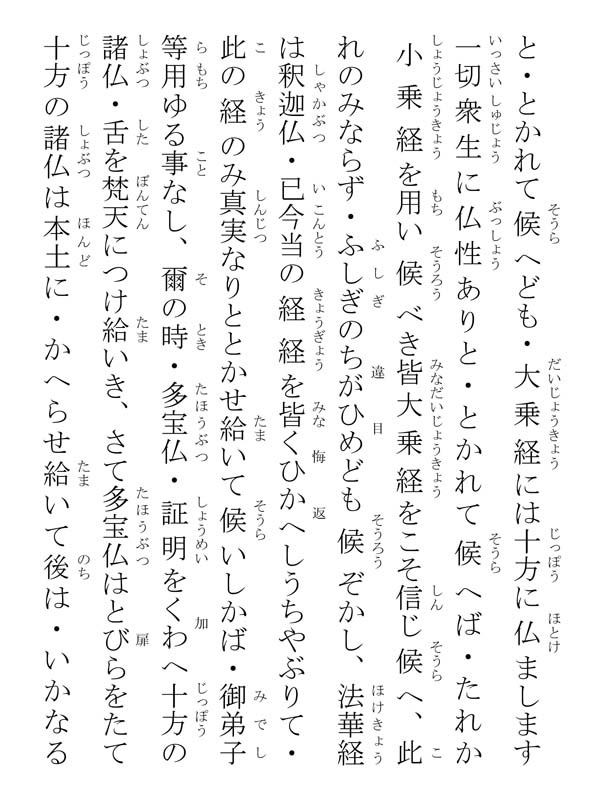 と・とかれて候へども・大乗経には十方に仏まします
一切衆生に仏性ありと・とかれて候へば・たれか
小乗経を用い候べき皆大乗経をこそ信じ候へ、此
れのみならず・ふしぎのちがひめども候ぞかし、法華経
は釈迦仏・已今当の経経を皆くひかへしうちやぶりて・
此の経のみ真実なりととかせ給いて候いしかば・御弟子
等用ゆる事なし、爾の時・多宝仏・証明をくわへ十方の
諸仏・舌を梵天につけ給いき、さて多宝仏はとびらをたて
十方の諸仏は本土に・かへらせ給いて後は・いかなる